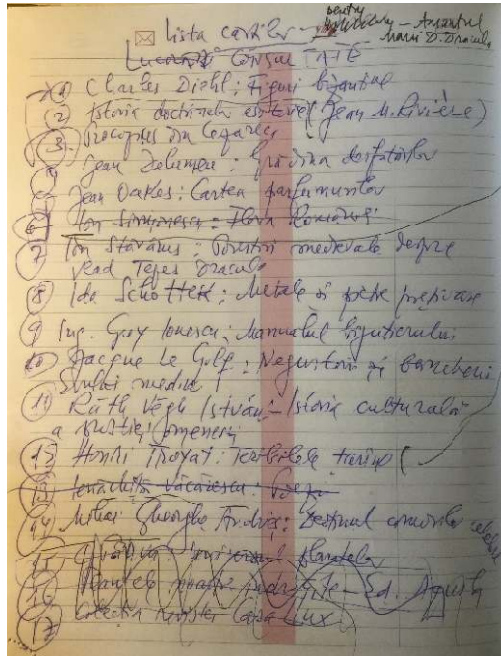 lista cărților - pentru
- Amantul
Mariei D. Dracula
Lucrări CONSULTATE
1 Charles Diehl: Figuri bizantine
2 Istoria doctrinelor esoterice (Jean M. Rivière)
3. Procopius din Cezareea
Jean Delumeau: Grădina desfătărilor
Jean Oakes: Cartea parfumurilor
6 Ion Simionescu: Flora României
7 Ion Stăvăruș: Povestiri medievale despre
Vlad Țepeș Dracula
8 Ida Schottek: Metale și pietre prețioase
9 Ing. Ionescu: Manualul bijutierului
10 Jacque Le Goff: Negustorii și bancherii
Evului mediu
11 Ráth Végh István - Istoria culturală
a prostiei omenești
Henri Troyat: Teribilele țarine
Ienăchiță Văcărescu:
14 Mihai Gheorghe Andrieș: Destinul comorilor celebre
plantele
16 Plantele noastre - Ed.
17 Colecția revistei Casa Lux